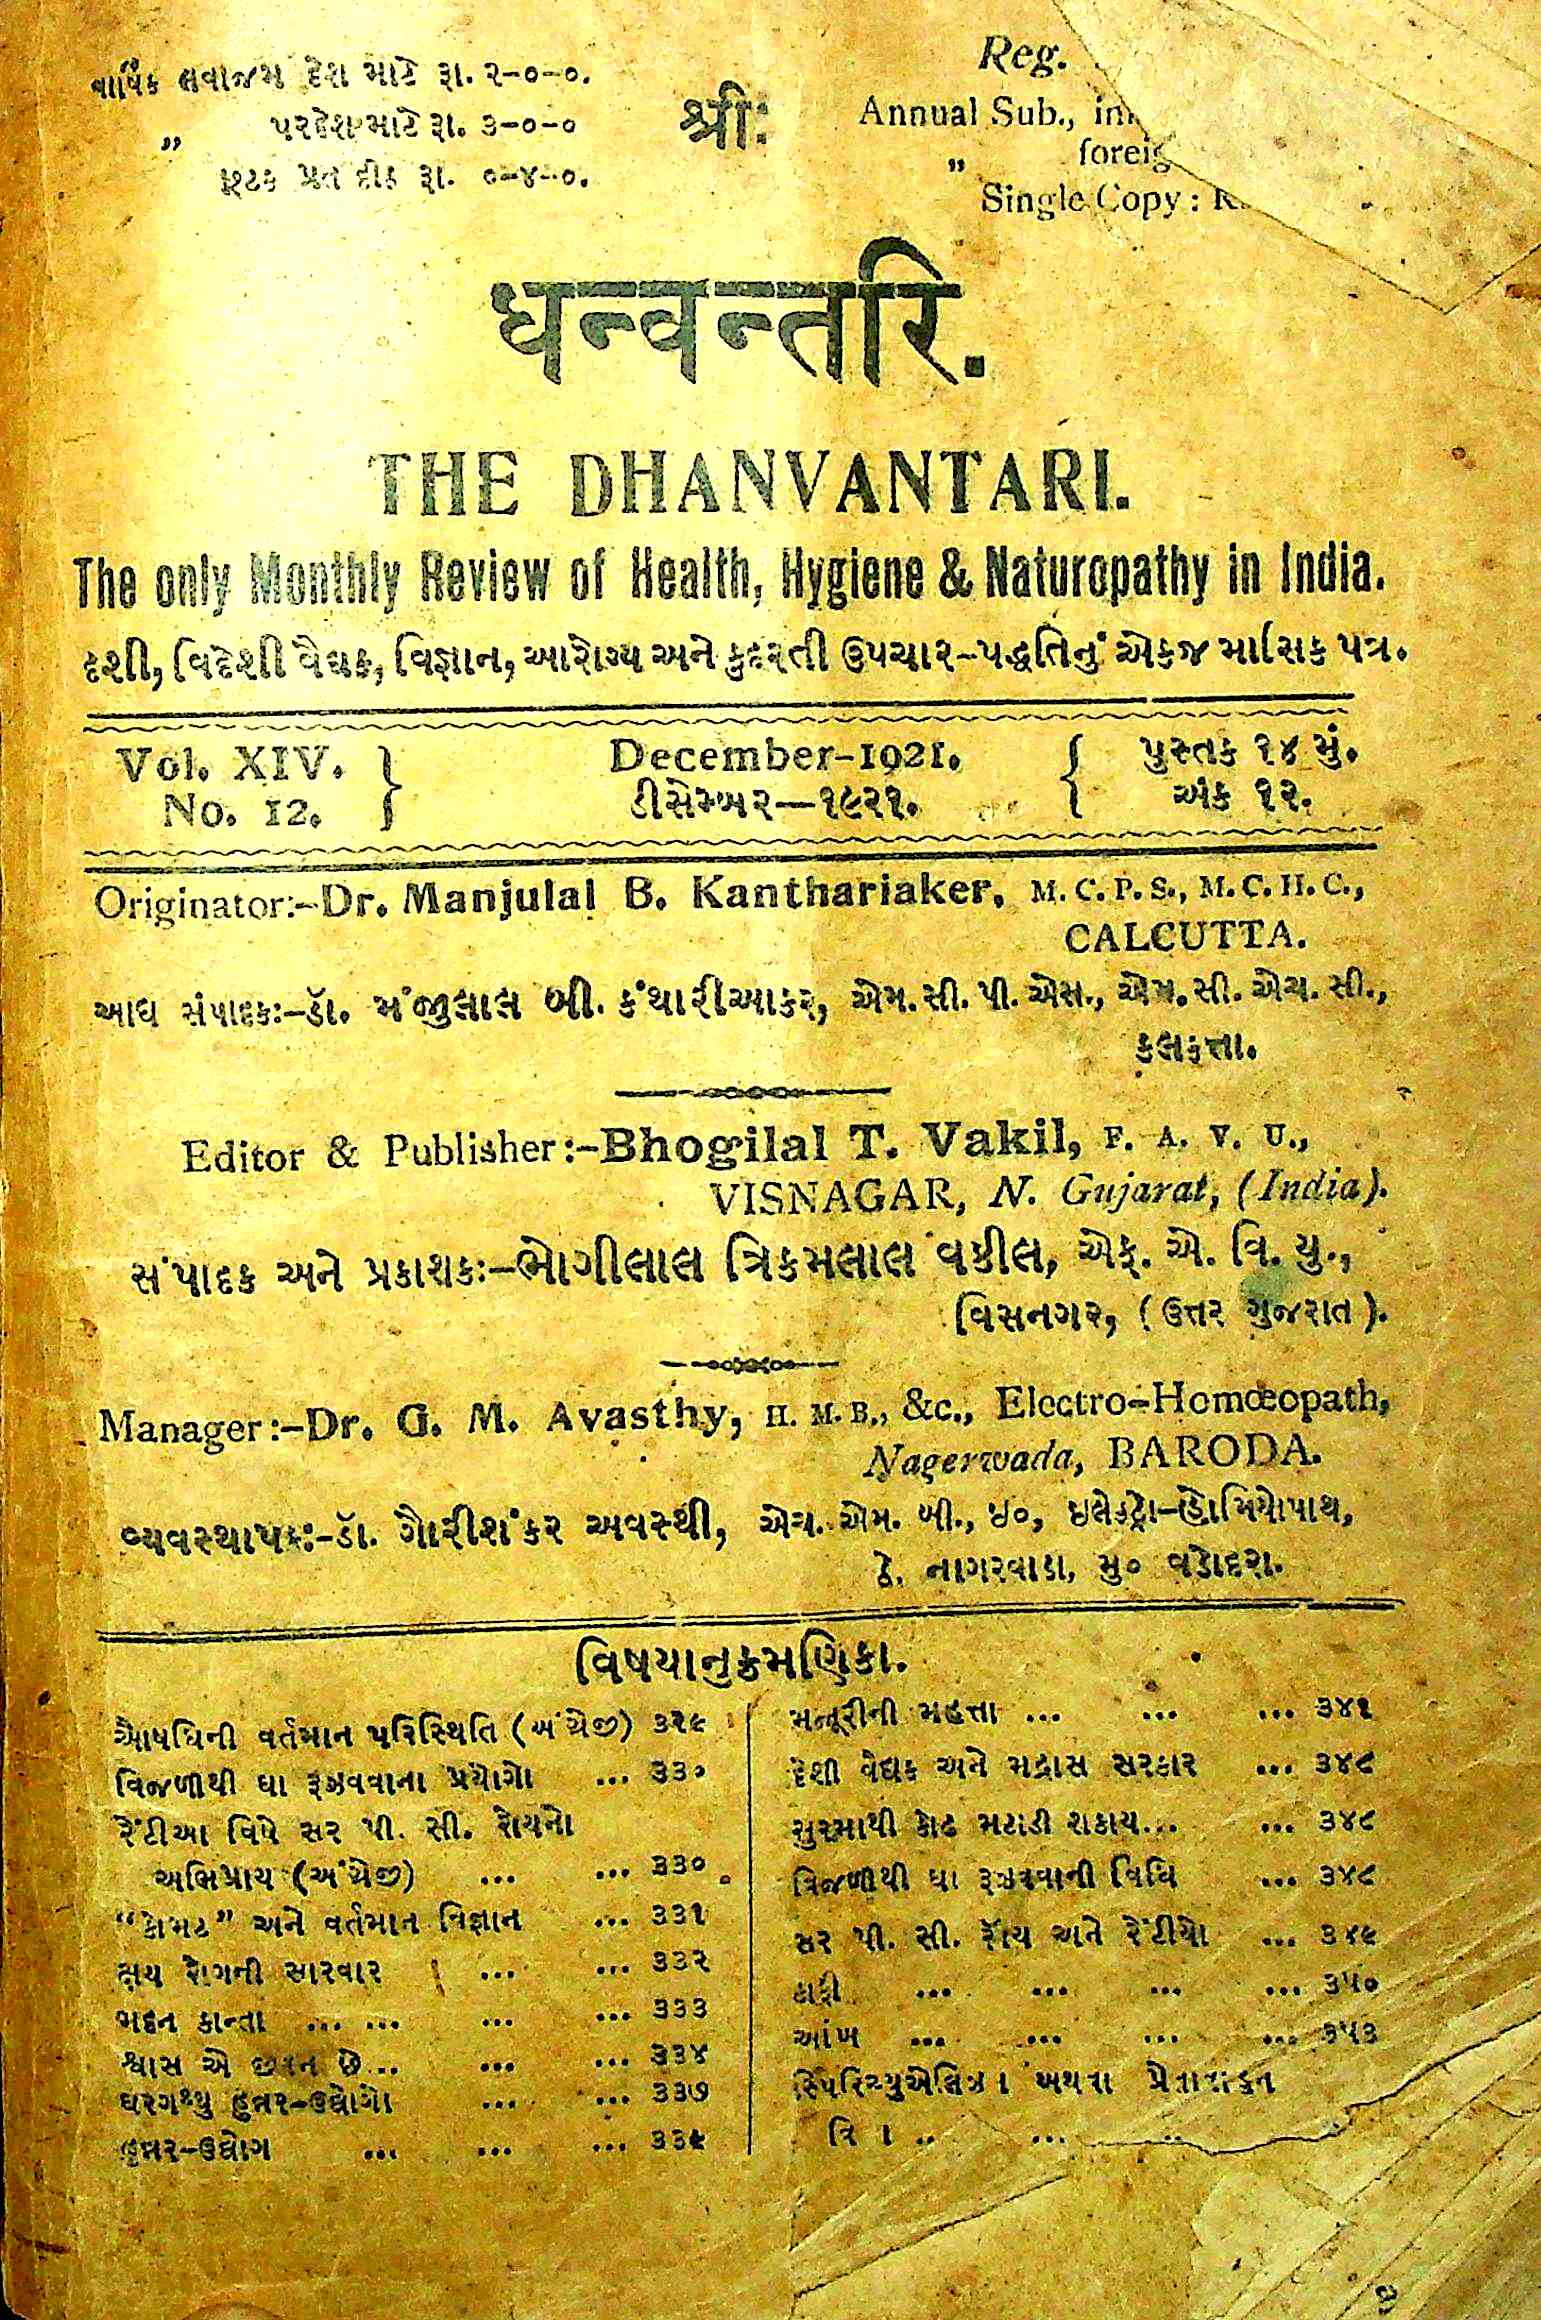 વાર્ષિક લવાજમ દેશ માટે રૂા. ૨-૦-૦.
„ પરદેશ માટે રૂા. ૩-૦-૦
છુટક પ્રત દીઠ રૂા. ૦-૪-૦.
श्रीः
Reg.
Annual Sub.,
„
Single Copy :
धन्वन्तरि.
THE DHANVANTARI.
The only Monthly Review of Health, Hygiene & Naturopathy in India.
દેશી, વિદેશી વૈદ્યક, વિજ્ઞાન, આરોગ્ય અને કુદરતી ઉપચાર-પદ્ધતિનું એકજ માસિક પત્ર.
Vol. XIV.
No. 12.
December-1921.
ડીસેમ્બર—૧૯૨૧.
પુસ્તક ૧૪ મું.
અંક ૧૨.
Originator:-Dr. Manjulal B. Kanthariaker, M. C. P. S., M. C. H. C.,
CALCUTTA.
આદ્ય સંપાદકઃ-ડૉ. મંજુલાલ બી. કંથારીઆકર, એમ. સી. પી. એસ., એમ. સી. એચ. સી.,
કલકત્તા.
Editor & Publisher:-Bhogilal T. Vakil, F. A. V. U.,
VISNAGAR, N. Gujarat, (India).
સંપાદક અને પ્રકાશકઃ-ભોગીલાલ ત્રિકમલાલ વકીલ, એફ્. એ. વિ. યુ.,
વિસનગર, ( ઉત્તર ગુજરાત ).
Manager:-Dr. G. M. Avasthy, H. M. B., &c., Electro-Homœopath,
Nagerwada, BARODA.
વ્યવસ્થાપકઃ-ડૉ. ગૌરીશંકર અવસ્થી, એચ. એમ. બી., ઇ૦, ઇલેકટ્રો-હોમિયોપાથ,
ઠે. નાગરવાડા, મુ૦ વડોદરા.
વિષયાનુક્રમણિકા.
ઔષધિની વર્તમાન પરિસ્થિતિ (અંગ્રેજી) ૩૨૯
વિજળીથી ઘા રૂઝવવાના પ્રયોગો ... ૩૩૦
રેંટીઆ વિષે સર પી. સી. રોયનો
અભિપ્રાય (અંગ્રેજી) ... ... ૩૩૦
“કોમટ” અને વર્તમાન વિજ્ઞાન ... ૩૩૧
ક્ષય રોગની સારવાર ... ... ૩૩૨
મદન કાન્તા ... ... ... ... ૩૩૩
શ્વાસ એ જીવન છે... ... ... ૩૩૪
ઘરગથ્થુ હુન્નર-ઉદ્યોગો ... ... ૩૩૭
હુન્નર-ઉદ્યોગ ... ... ... ૩૩૯
મજૂરીની મહત્તા ... ... ... ૩૪૧
દેશી વૈદ્યક અને મદ્રાસ સરકાર ... ૩૪૮
સુરમાથી કોઢ મટાડી શકાય... ... ૩૪૮
વિજળીથી ઘા રૂઝવવાની વિધિ ... ૩૪૮
સર પી. સી. રૉય અને રેંટીયો ... ૩૪૯
કાફી ... ... ... ... ૩૫૦
આંખ ... ... ... ... ૩૫૩
અથવા